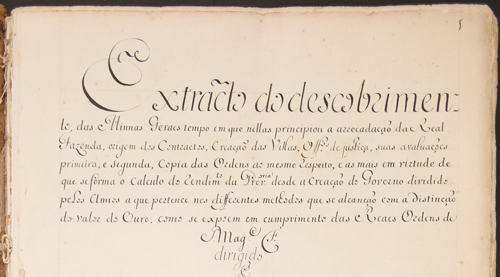 Extracto do descobrimen=
to, das Minnas Geraes tempo em que nellas principiou a arrecadação da Real
Fazenda, origem dos Contractos, Creação das Villas, Offos. de justiça, suas avaluações
primeira, e segunda, Copia das Ordens ao mesmo respeito, e as mais em virtude de
que se forma o Calculo do Rendimto. da Provcia. desde a Creação do Governo dividido
pelos Annos a que pertence nos differentes methodos que se alcanção com a distinção
do valor do Ouro, como se expoem em cumprimento das Reaes Ordens de
S. Mage. F.
dirigido